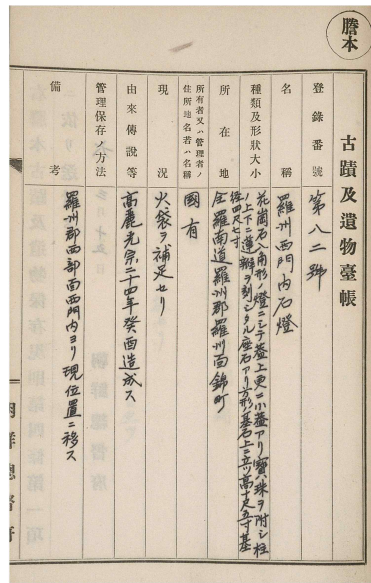 謄本
古蹟及遺物臺帳
登錄番號 第八二號
名稱 羅州西門內石燈
種類及形狀大小 花崗石八角形ノ燈ニシテ蓋上更ニ小蓋アリ寶珠ヲ附シ柱
ノ上下ニ蓮瓣ヲ刻シタル座石アリ方形ノ基石上ニ立ツ高十尺五寸基
徑四尺七寸
所在地 全羅南道羅州郡羅州面錦町
所有者又ハ管理者ノ
住所地名若ハ名稱 國有
現況 火袋ヲ補足セリ
由來傳說等 高麗光宗二十四年癸酉造成ス
管理保存ノ方法
備考 羅州郡西部面西門內ヨリ現位置ニ移ス
朝鮮總督府